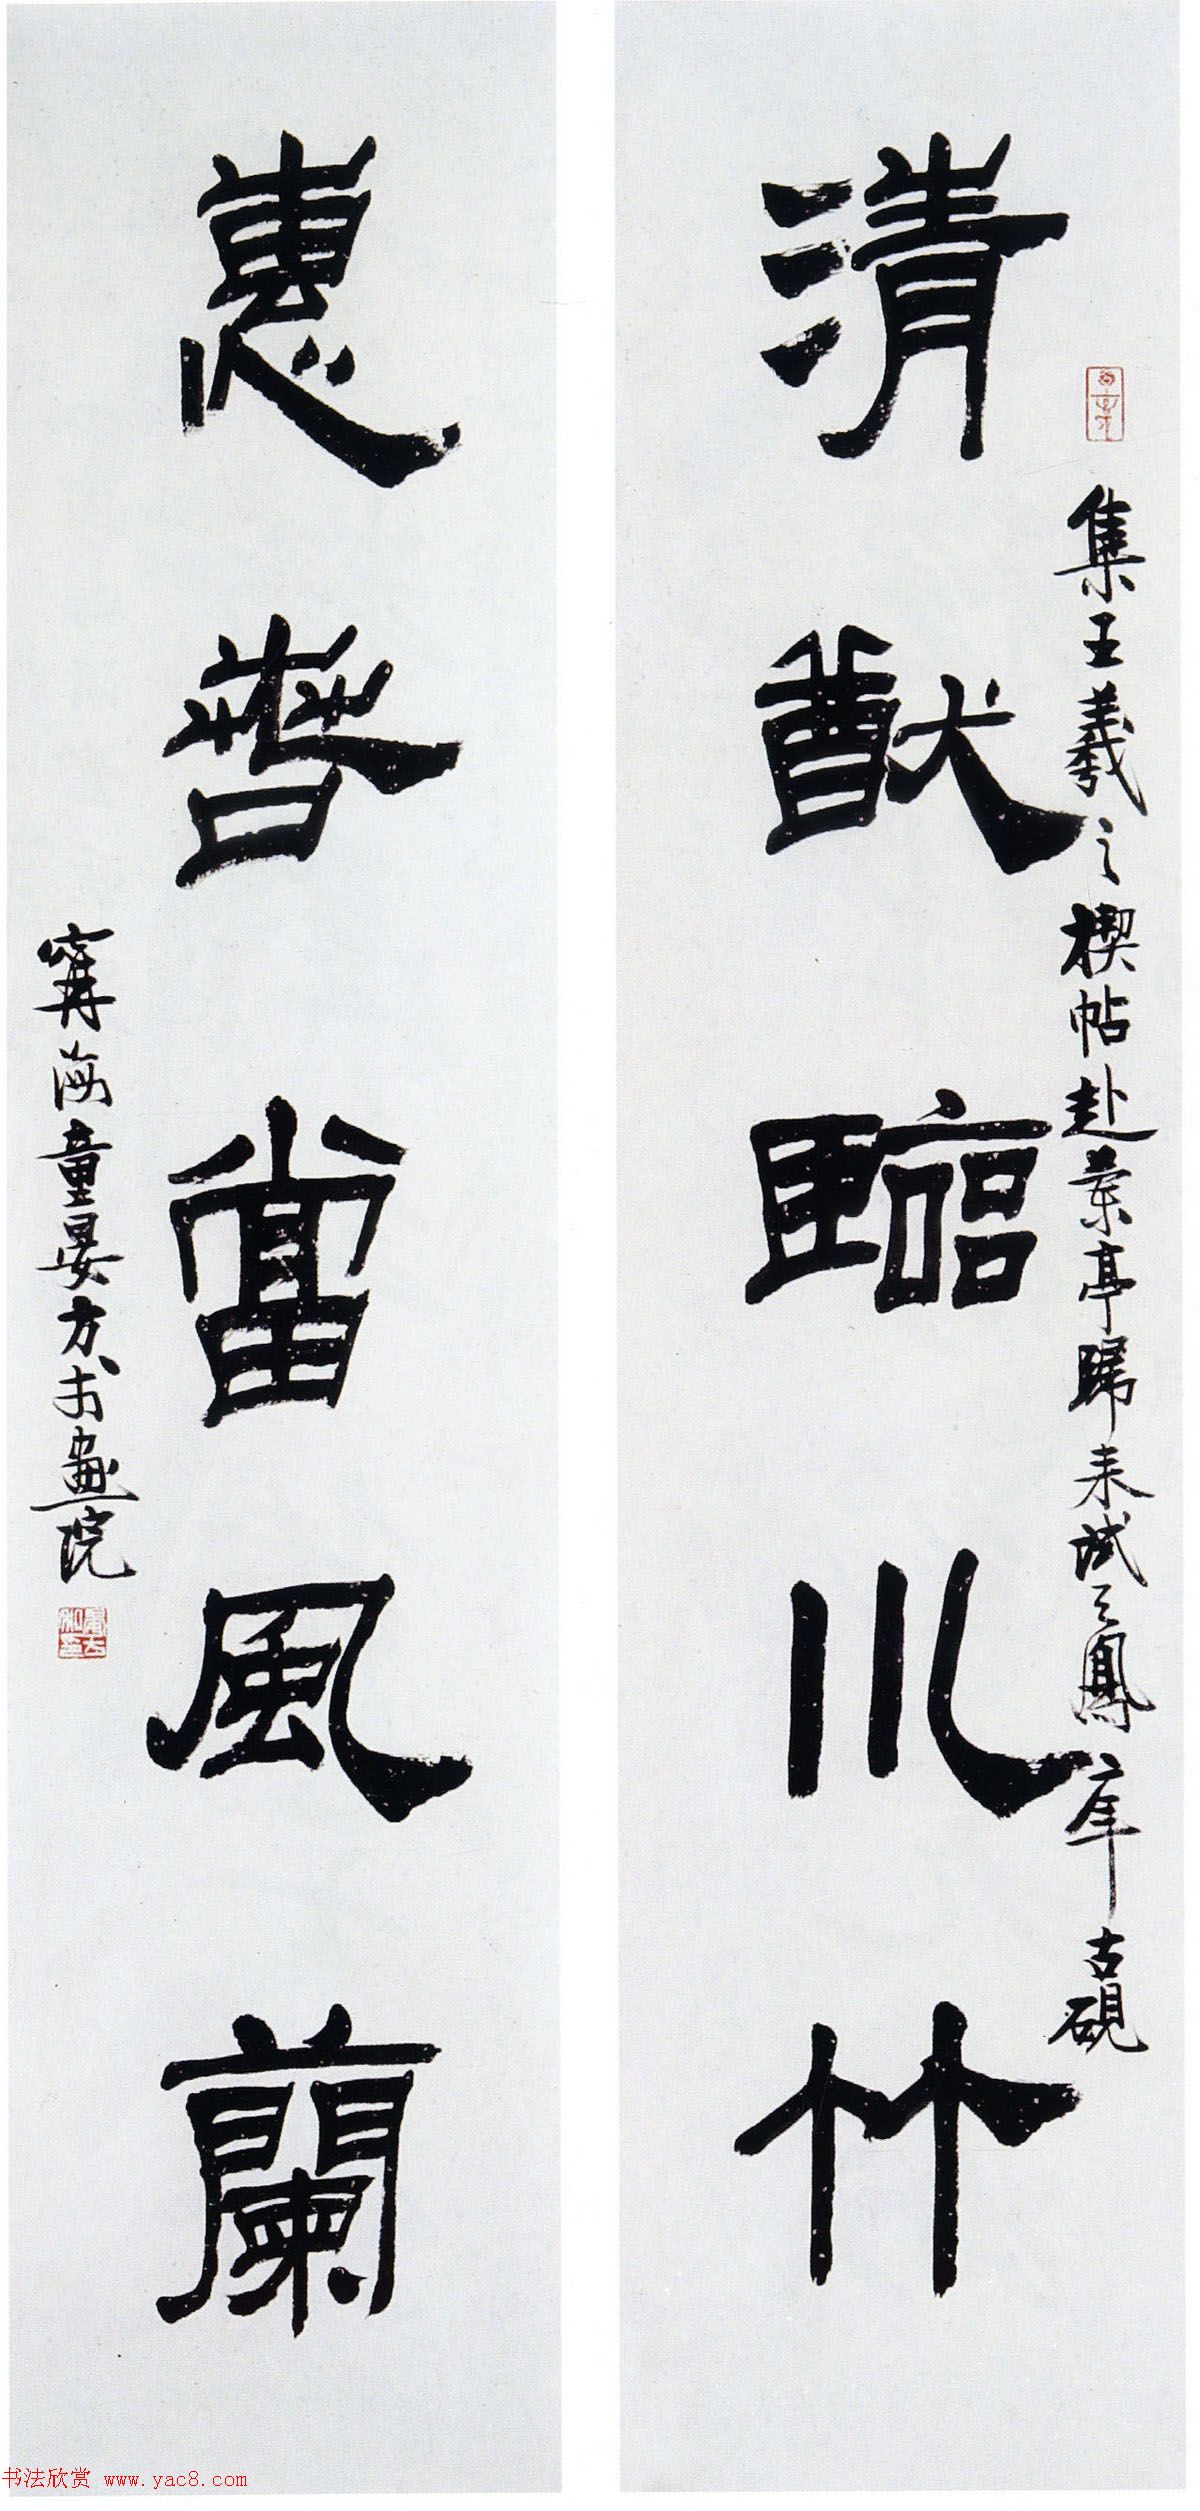 清猷臨川竹
集王羲之禊帖赴蘭亭歸来試之鳳年古硯
惠春當風蘭
寧海童晏方书畫院
书法欣赏 www.yac8.com